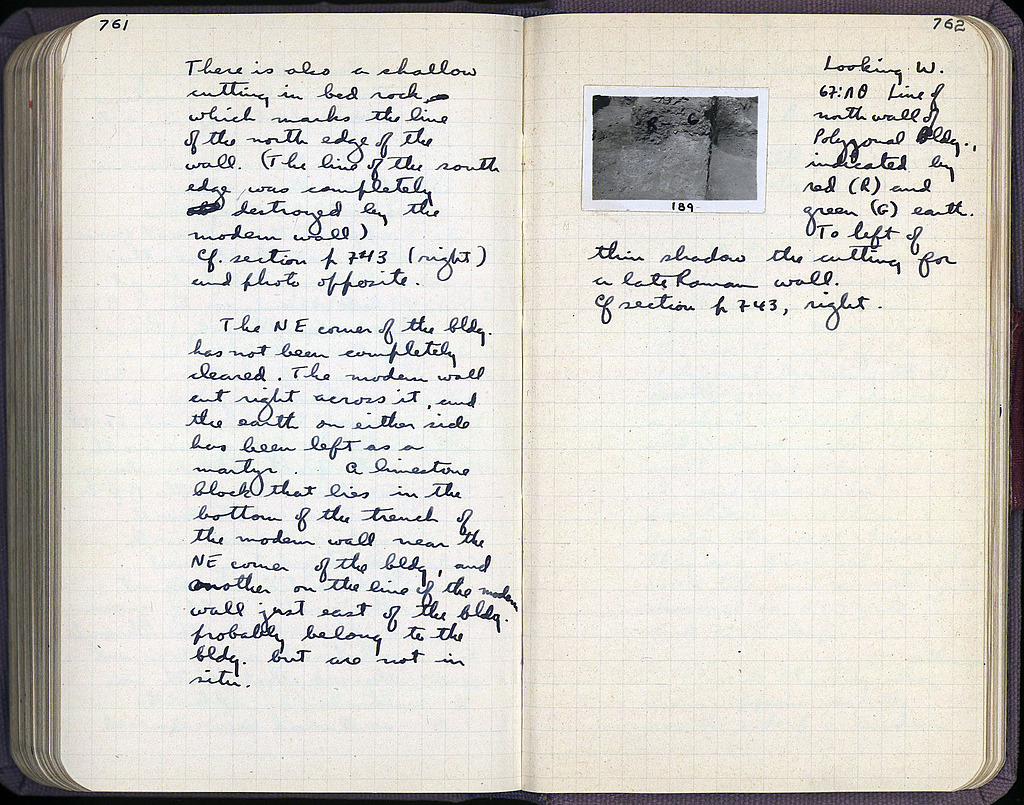 761
There is also a shallow
cutting in bed rock,
which marks the line
of the north edge of the
wall. (The line of the south
edge was completely
destroyed by the
modern wall)
Cf. section p 743 (right)
and photo opposite.
The NE corner of the bldg.
has not been completely
cleared. The modern wall
cut right across it, and
the earth on either side
has been left as a
martyr. A limestone
block that lies in the
bottom of the trench of
the modern wall near the
NE corner of the bldg, and
another on the line of the modern
wall just east of the bldg.
probably belong to the
bldg. but are not in
situ.
762
Looking W.
Line of
north wall of
Polygonal Bldg.,
indicated by
red (R) and
green (G) earth.
To left of
thin shadow the cutting for
a late Roman wall.
Cf section p 743, right.
R G
189